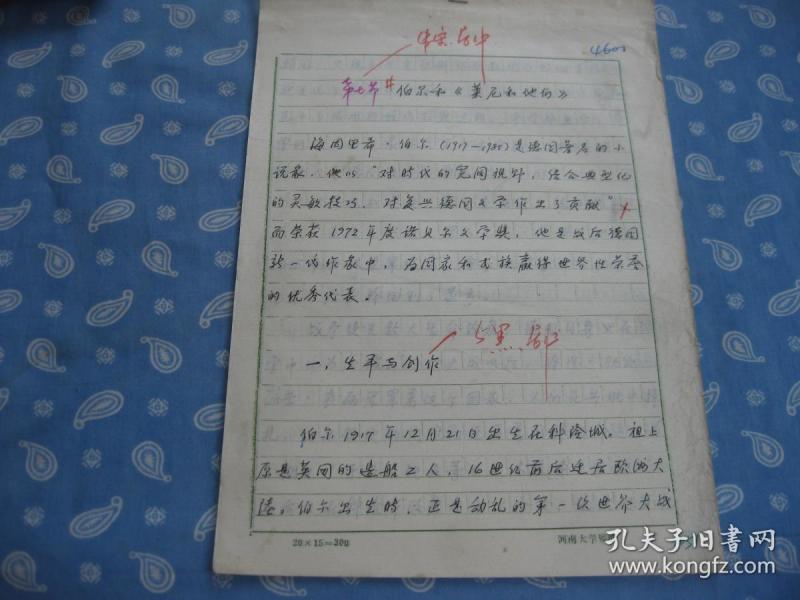 4600
第七节 伯尔和《莱尼和他们》
海因里希·伯尔(1917—1985)是德国著名的小
说家。他以“对时代的宽阔视野,结合典型化
的灵敏技巧,对复兴德国文学作出了贡献”
而荣获1972年度诺贝尔文学奖,他是战后德国
新一代作家中,为国家和民族赢得世界性荣誉
的优秀代表。
一、生平与创作
伯尔1917年12月21日出生在科隆城。祖上
原是英国的造船工人,16世纪前后迁居欧洲大
陆。伯尔出生时,正是动乱的第一次世界大战
20×15=300
河南大学
孔夫子旧书网
www.kongfz.com